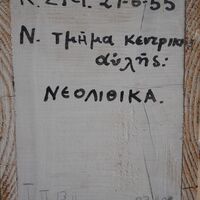 21-6-55
Ν. Τμῆμα κεντρικῆς
αὐλῆς:
ΝΕΟΛΙΘΙΚΑ.